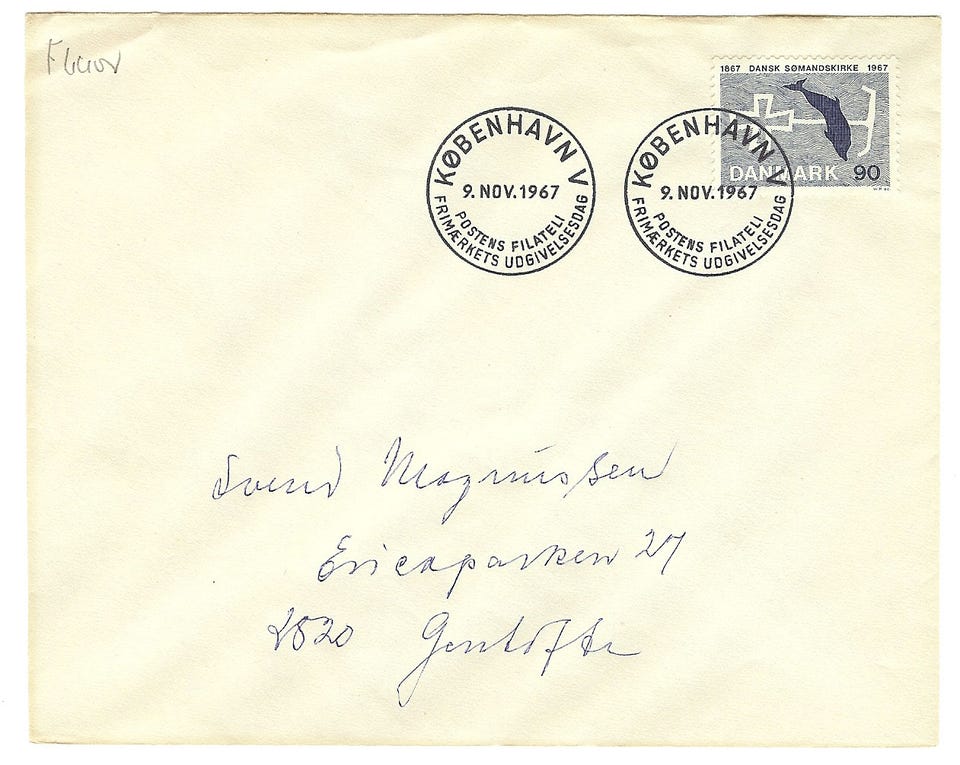 1867 DANSK SØMANDSKIRKE 1967
DANMARK 90
KØBENHAVN V
9. NOV. 1967
POSTENS FILATELI
FRIMÆRKETS UDGIVELSESDAG
KØBENHAVN V
9. NOV. 1967
POSTENS FILATELI
FRIMÆRKETS UDGIVELSESDAG
Svend Magnussen
Ericaparken 27
2820 Gentofte